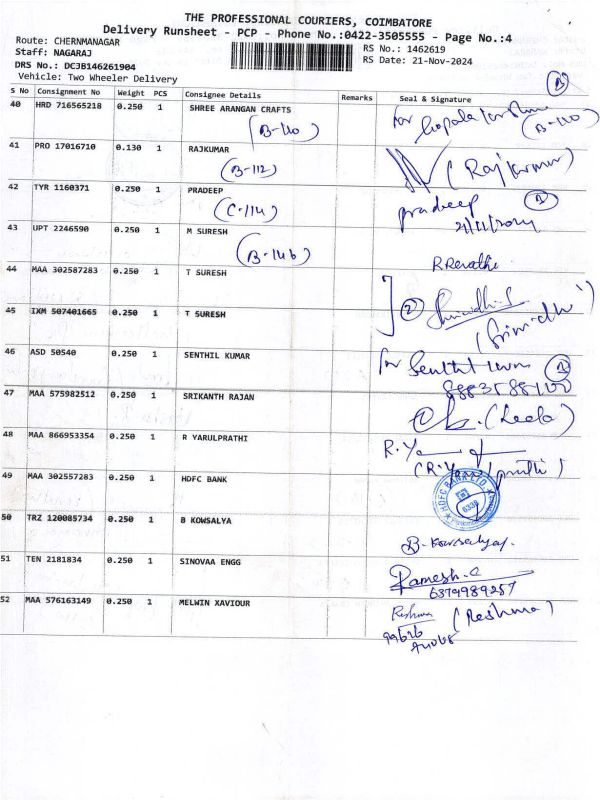 THE PROFESSIONAL COURIERS, COIMBATORE
Delivery Runsheet - PCP - Phone No.:0422-3505555 - Page No.:4
Route: CHERNMANAGAR
Staff: NAGARAJ
RS No.: 1462619
RS Date: 21-Nov-2024
DRS No.: DCJB146261904
Vehicle: Two Wheeler Delivery
S No Consignment No Weight PCS Consignee Details Remarks Seal & Signature
40 HRD 716565218 0.250 1 SHREE ARANGAN CRAFTS for
(B-110) (B-110)
41 PRO 17016710 0.130 1 RAJKUMAR
(B-112) (Rajkumar)
42 TYR 1160371 0.250 1 PRADEEP pradeep 1
(C-114) 21/11/2024
43 UPT 2246590 0.250 1 M SURESH
(B-146) R.Revathi
44 MAA 302587283 0.250 1 T SURESH
45 IXM 507401665 0.250 1 T SURESH 2
(Srinidhi)
46 ASD 50540 0.250 1 SENTHIL KUMAR for Senthil
47 MAA 575982512 0.250 1 SRIKANTH RAJAN
(Leela)
48 MAA 866953354 0.250 1 R YARULPRATHI
49 MAA 302557283 0.250 1 HDFC BANK
HDFC BANK LTD.
50 TRZ 120085734 0.250 1 B KOWSALYA
B. Kowsalya
51 TEN 2181834 0.250 1 SINOVAA ENGG
Ramesh.C
6374989257
52 MAA 576163149 0.250 1 MELWIN XAVIOUR Reshma (Reshma)